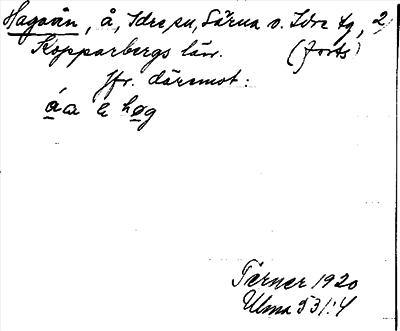 Hagoån, å, Idre sn, Särna o. Idre tg, 2,
Kopparbergs län. (forts)
Jfr. däremot:
áa e høg
Törner 1920
Ulma 531:4